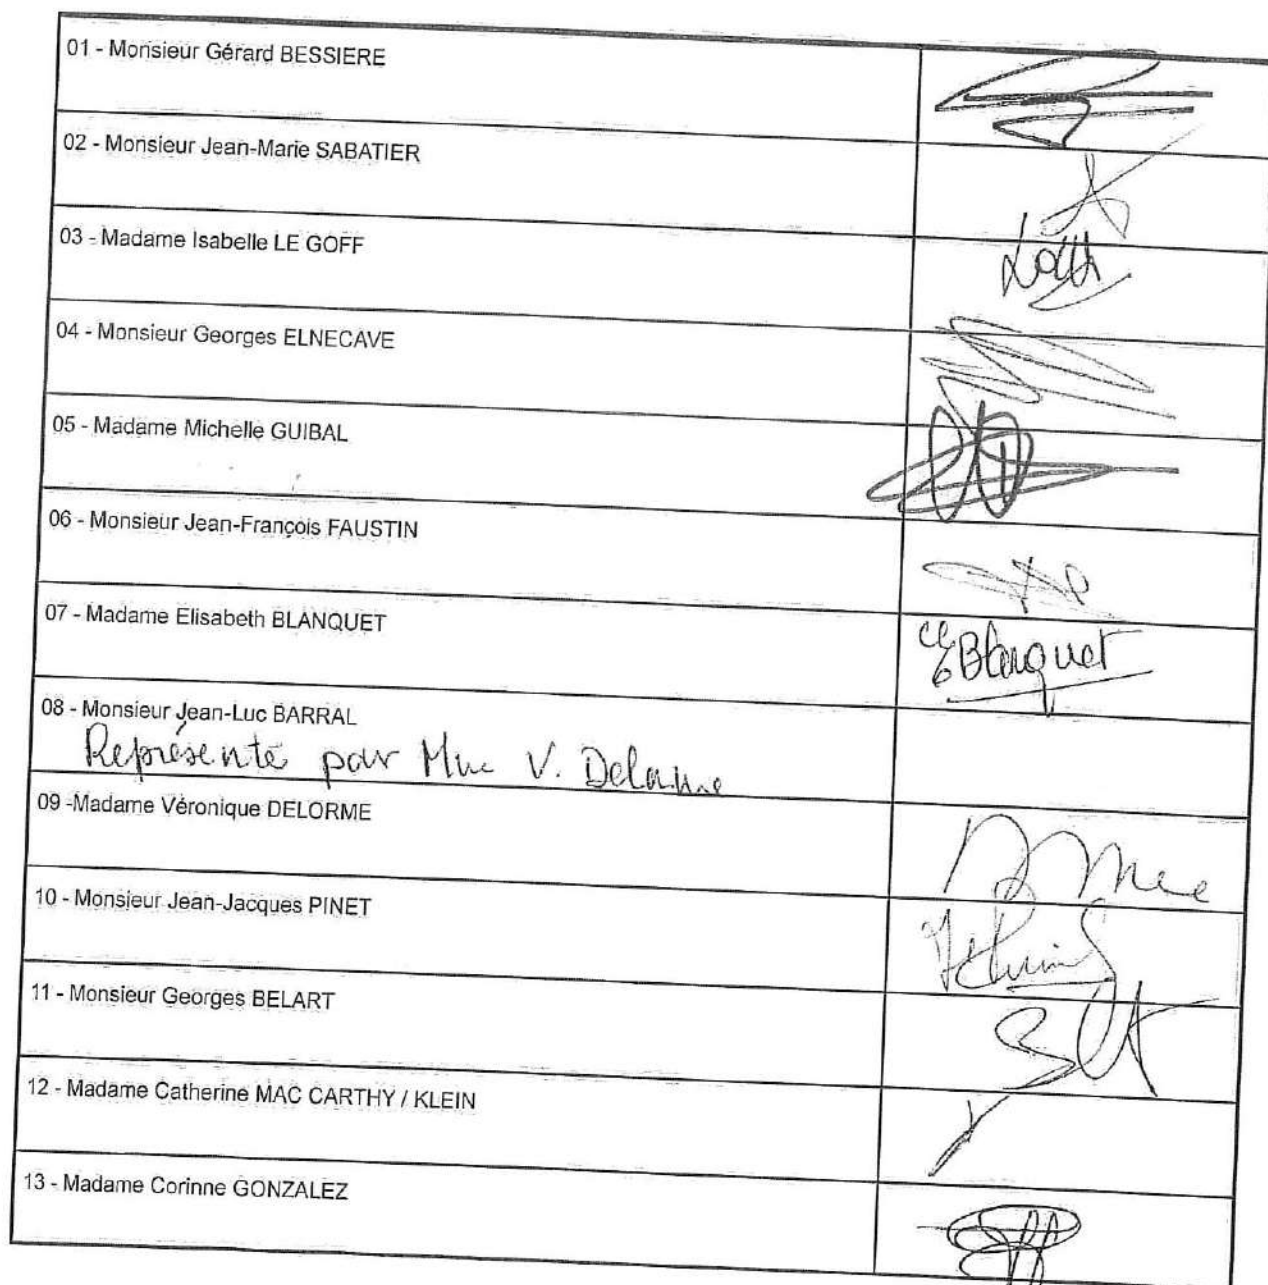 01 - Monsieur Gérard BESSIERE
02 - Monsieur Jean-Marie SABATIER
03 - Madame Isabelle LE GOFF
04 - Monsieur Georges ELNECAVE
05 - Madame Michelle GUIBAL
06 - Monsieur Jean-François FAUSTIN
07 - Madame Elisabeth BLANQUET
Blanquet
08 - Monsieur Jean-Luc BARRAL
Représenté par Mme V. Delorme
09 -Madame Véronique DELORME
10 - Monsieur Jean-Jacques PINET
11 - Monsieur Georges BELART
12 - Madame Catherine MAC CARTHY / KLEIN
13 - Madame Corinne GONZALEZ